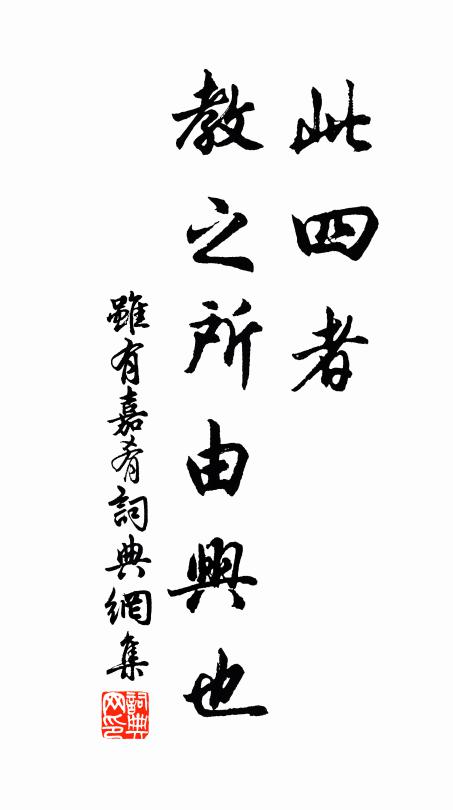 此四者
教之所由興也
雖有嘉肴詞典網集
詞典
网印